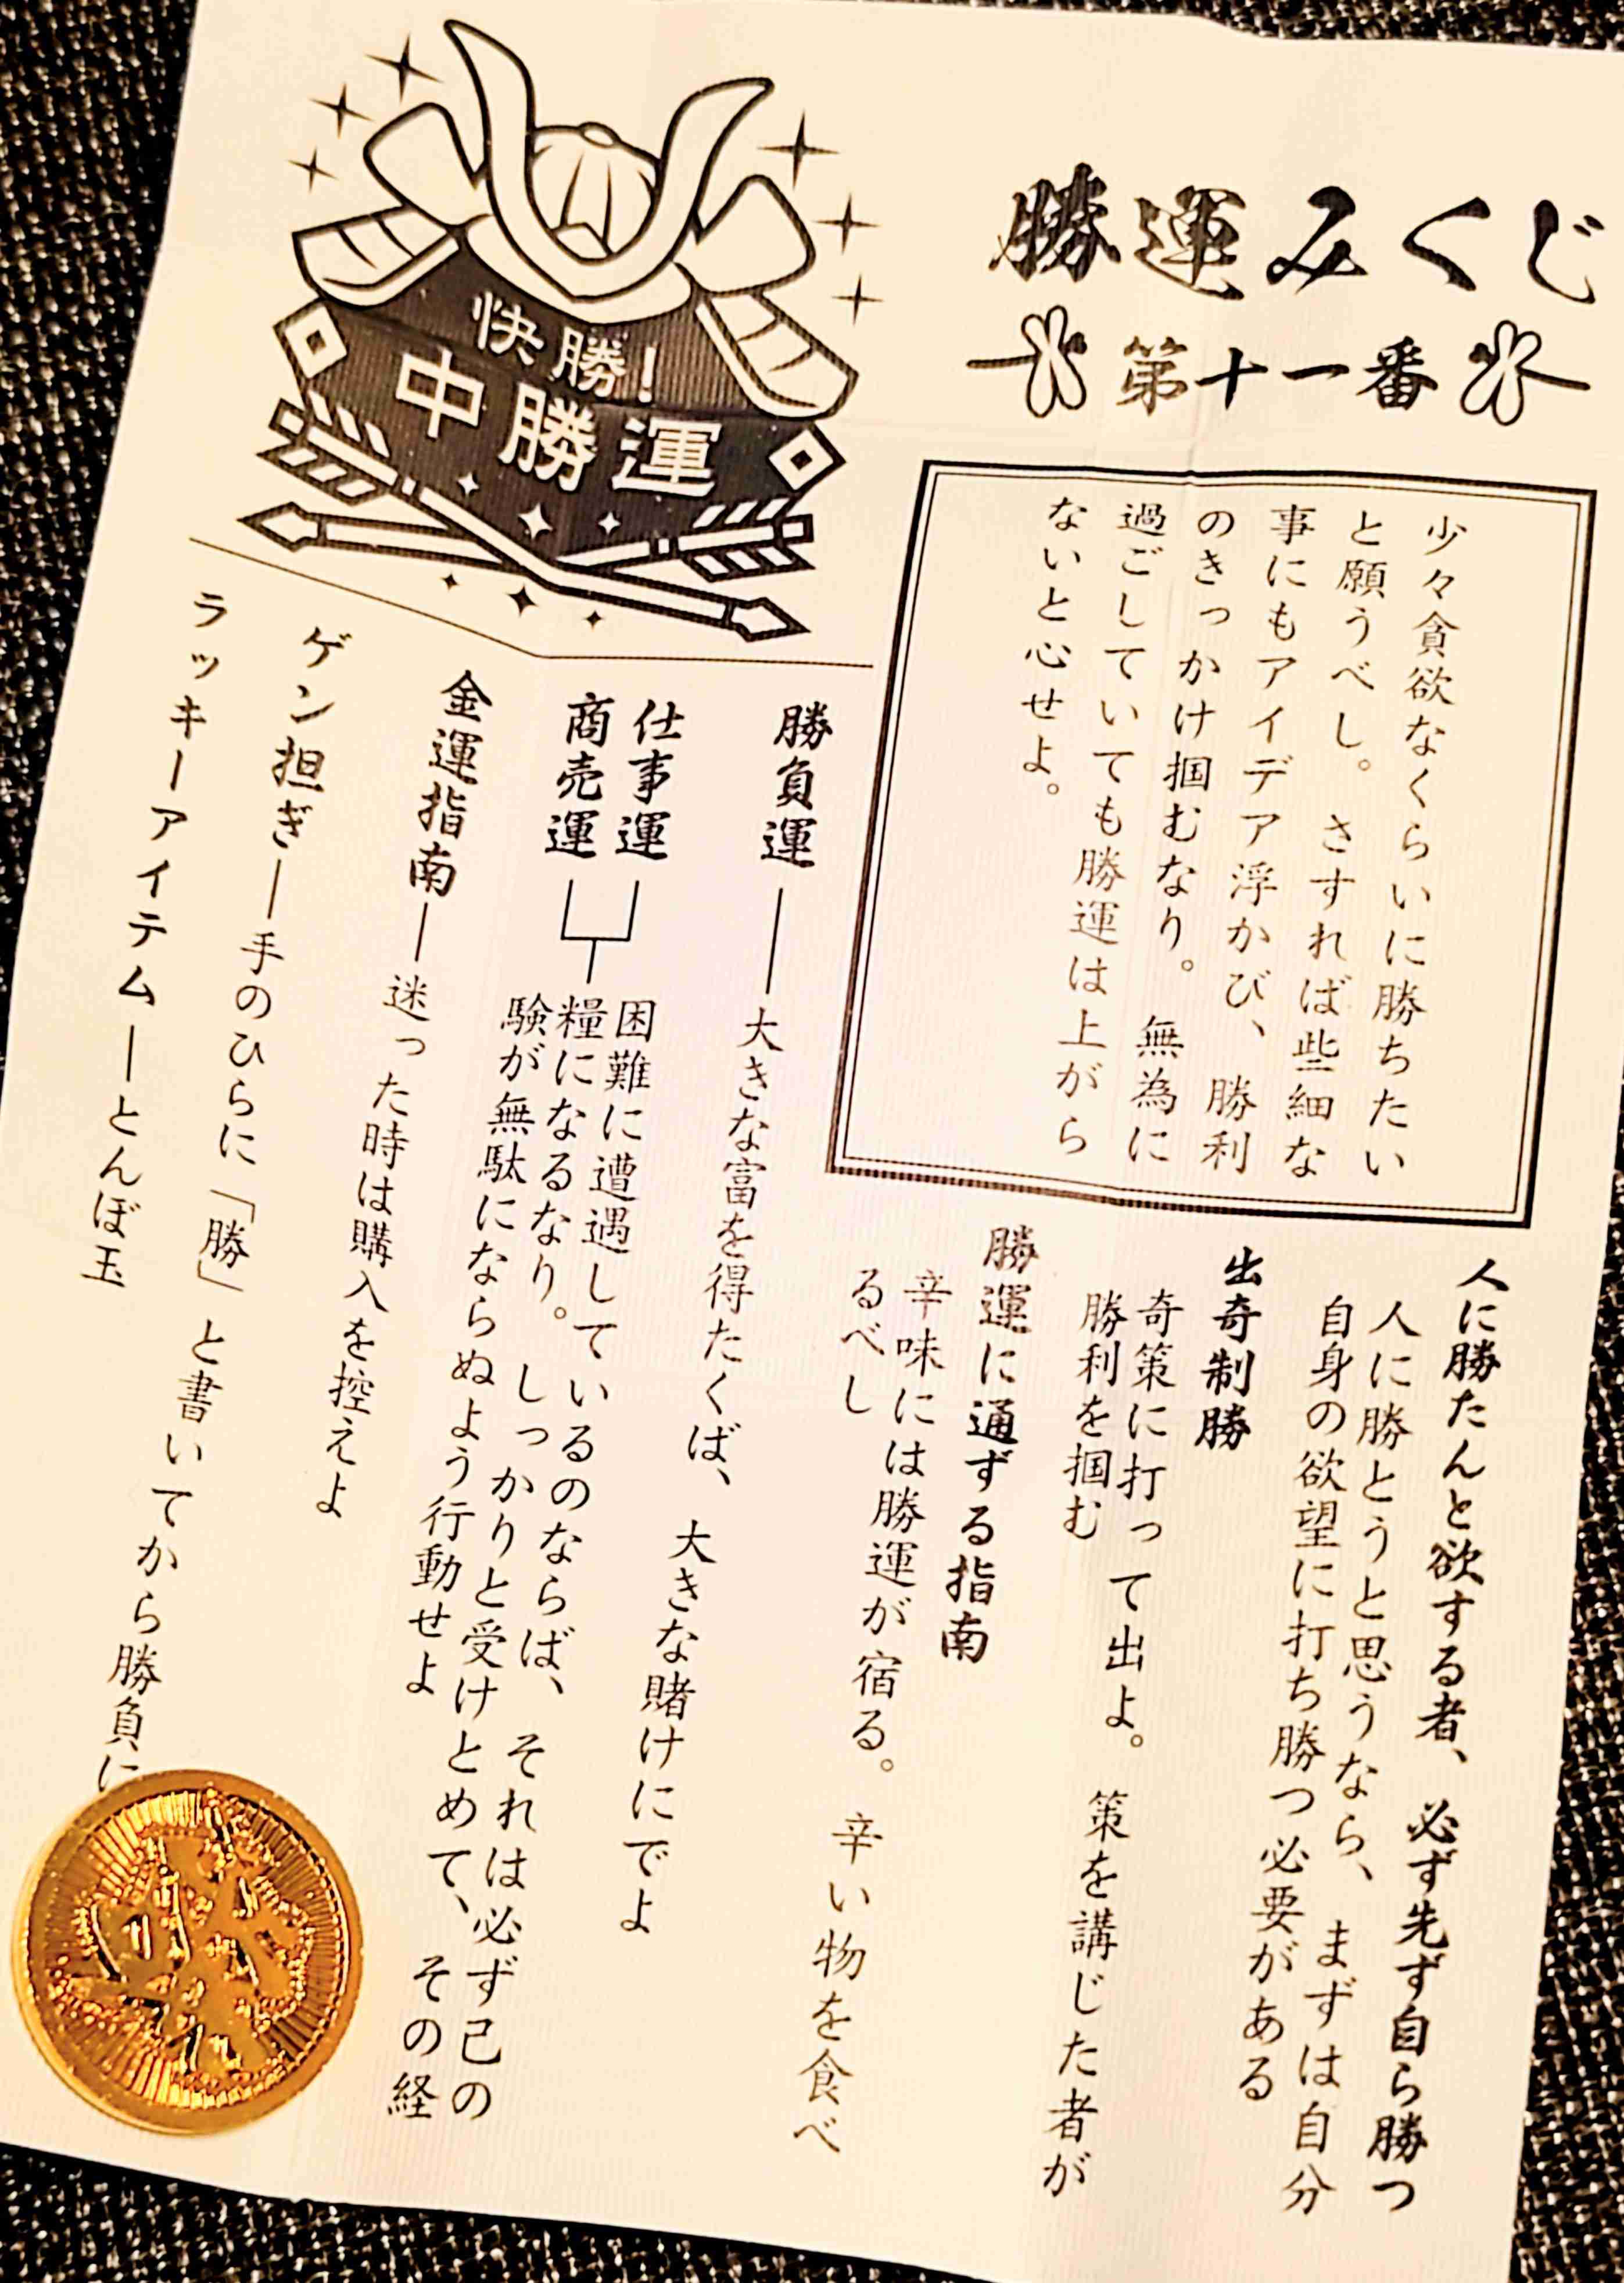 勝運みくじ
第十一番
少々貪欲なくらいに勝ちたい
と願うべし。さすれば些細な
事にもアイデア浮かび、勝利
のきっかけ掴むなり。無為に
過ごしていても勝運は上がら
ないと心せよ。
人に勝たんと欲する者、必ず先ず自ら勝つ
人に勝とうと思うなら、まずは自分
自身の欲望に打ち勝つ必要がある
出奇制勝
奇策に打って出よ。策を講じた者が
勝利を掴む
勝運に通ずる指南
辛味には勝運が宿る。辛い物を食べ
るべし
快勝!
中勝運
勝負運
大きな富を得たくば、大きな賭けにでよ
仕事運
商売運
困難に遭遇しているのならば、それは必ず己の
糧になるなり。しっかりと受けとめて、その経
験が無駄にならぬよう行動せよ
金運指南
迷った時は購入を控えよ
ゲン担ぎ
手のひらに「勝」と書いてから勝負に
ラッキーアイテム
とんぼ玉